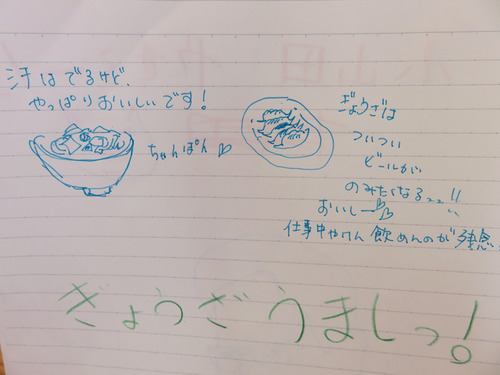 汗はでるけど、
やっぱりおいしいです!
ちゃんぽん♡
ぎょうざは
ついつい
ビールが
のみたくなる〜!!
おいしー
仕事中やけん 飲めんのが残念
ぎょうざうましっ!